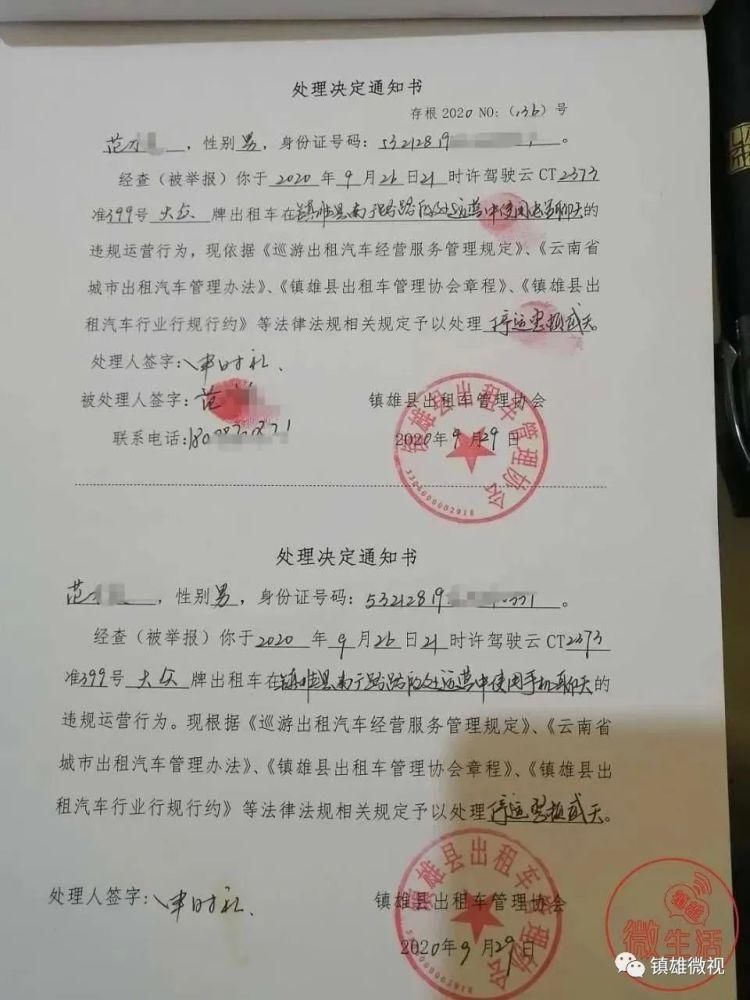 处理决定通知书
存根 2020 NO:(136)号
范，性别男，身份证号码：53212819。
经查（被举报）你于2020年9月26日21时许驾驶云CT2373
准399号 大众 牌出租车在镇雄县南广路路段处运营中使用聊天的
违规运营行为，现依据《巡游出租汽车经营服务管理规定》、《云南省
城市出租汽车管理办法》、《镇雄县出租车管理协会章程》、《镇雄县出
租汽车行业行规行约》等法律法规相关规定予以处理 停运整顿贰天。
处理人签字：申时礼.
被处理人签字：范
镇雄县出租车管理协会
联系电话：180
2020年9月29日
镇雄县出租车管理协会
5306000002918
处理决定通知书
范，性别男，身份证号码：53212819。
经查（被举报）你于2020年9月26日21时许驾驶云CT2373
准399号 大众 牌出租车在镇雄县南广路路段处运营中使用手机聊天的
违规运营行为。现根据《巡游出租汽车经营服务管理规定》、《云南省
城市出租汽车管理办法》、《镇雄县出租车管理协会章程》、《镇雄县出
租汽车行业行规行约》等法律法规相关规定予以处理停运整顿贰天。
处理人签字：申时礼.
镇雄县出租车管理协会
2020年9月29日
镇雄县出租车管理协会
微生活
镇雄微视